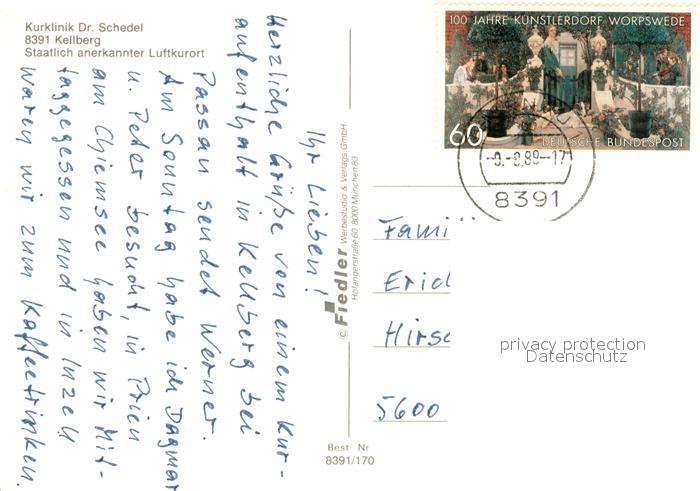 Kurklinik Dr. Schedel
8391 Kellberg
Staatlich anerkannter Luftkurort
Ihr Lieben!
Herzliche Grüße von einem Kur-
aufenthalt in Kellberg bei
Passau sendet Werner.
Am Sonntag habe ich Dagmar
u. Peter besucht, in Prien
am Chiemsee haben wir Mit-
taggegessen und in Inzell
waren wir zum Kaffeetrinken.
© Fiedler Werbestudio & Verlags GmbH
Hofangerstraße 60 8000 München 83
Best. Nr
8391/170
100 JAHRE KÜNSTLERDORF WORPSWEDE
60
DEUTSCHE BUNDESPOST
89-17
8391
Fami
Eric
Hirsc
5600
privacy protection
Datenschutz